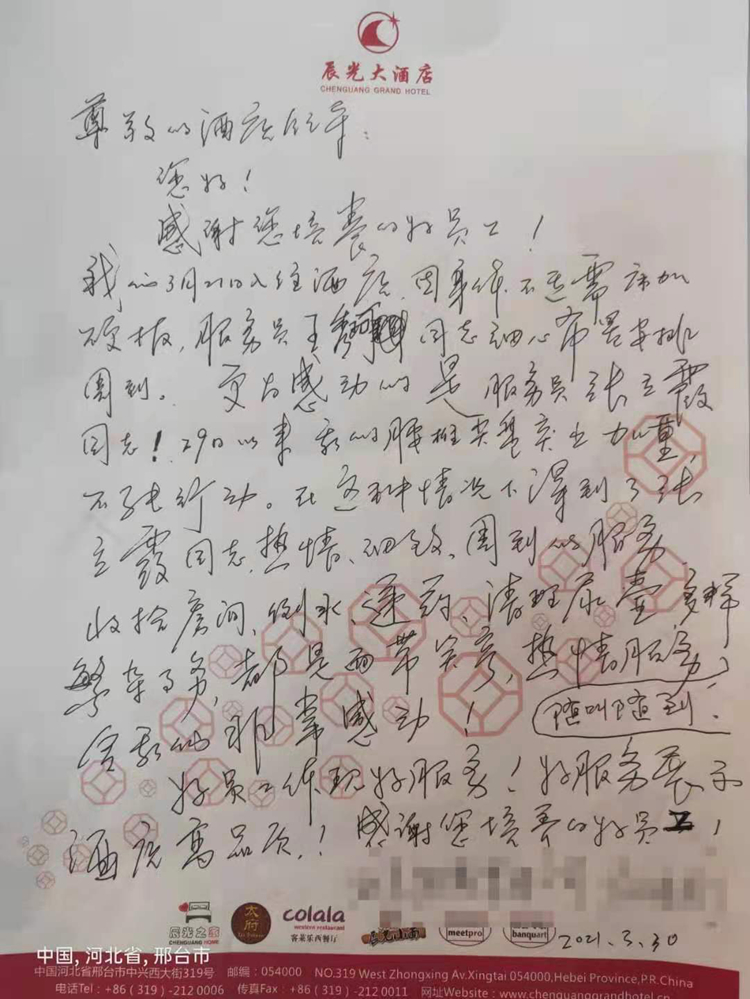 辰光大酒店
CHENGUANG GRAND HOTEL
尊敬的酒店领导:
您好!
感谢您培养的好员工!
我们3月21日入住酒店,因身体不适需床加
硬板,服务员王 同志细心布置安排
周到。更为感动的是服务员张立霞
同志!29日以来我的腰椎间盘突出加重,
不能行动。在这种情况下得到了张
立霞同志,热情、细致、周到的服务.
收拾房间,倒水、递药、清理尿壶多样
繁杂事务,都是面带笑容,热情服务,
随叫随到.
令我们非常感动!
好员工体现好服务!好服务展示
酒店高品质!感谢您培养的好员工!
辰光之家
CHENGUANG HOME
colala
western restaurant
客莱乐西餐厅
meetpro
banquart
2021.3.30
中国, 河北省, 邢台市
中国河北省邢台市中兴西大街319号 邮编:054000 NO.319 West Zhongxing Av.Xingtai 054000,Hebei Province,P.R.China
电话Tel:+86(319)-212 0006 传真Fax:+86(319)-212 0011 网址Website:www.chenguanggrandhotel.cn